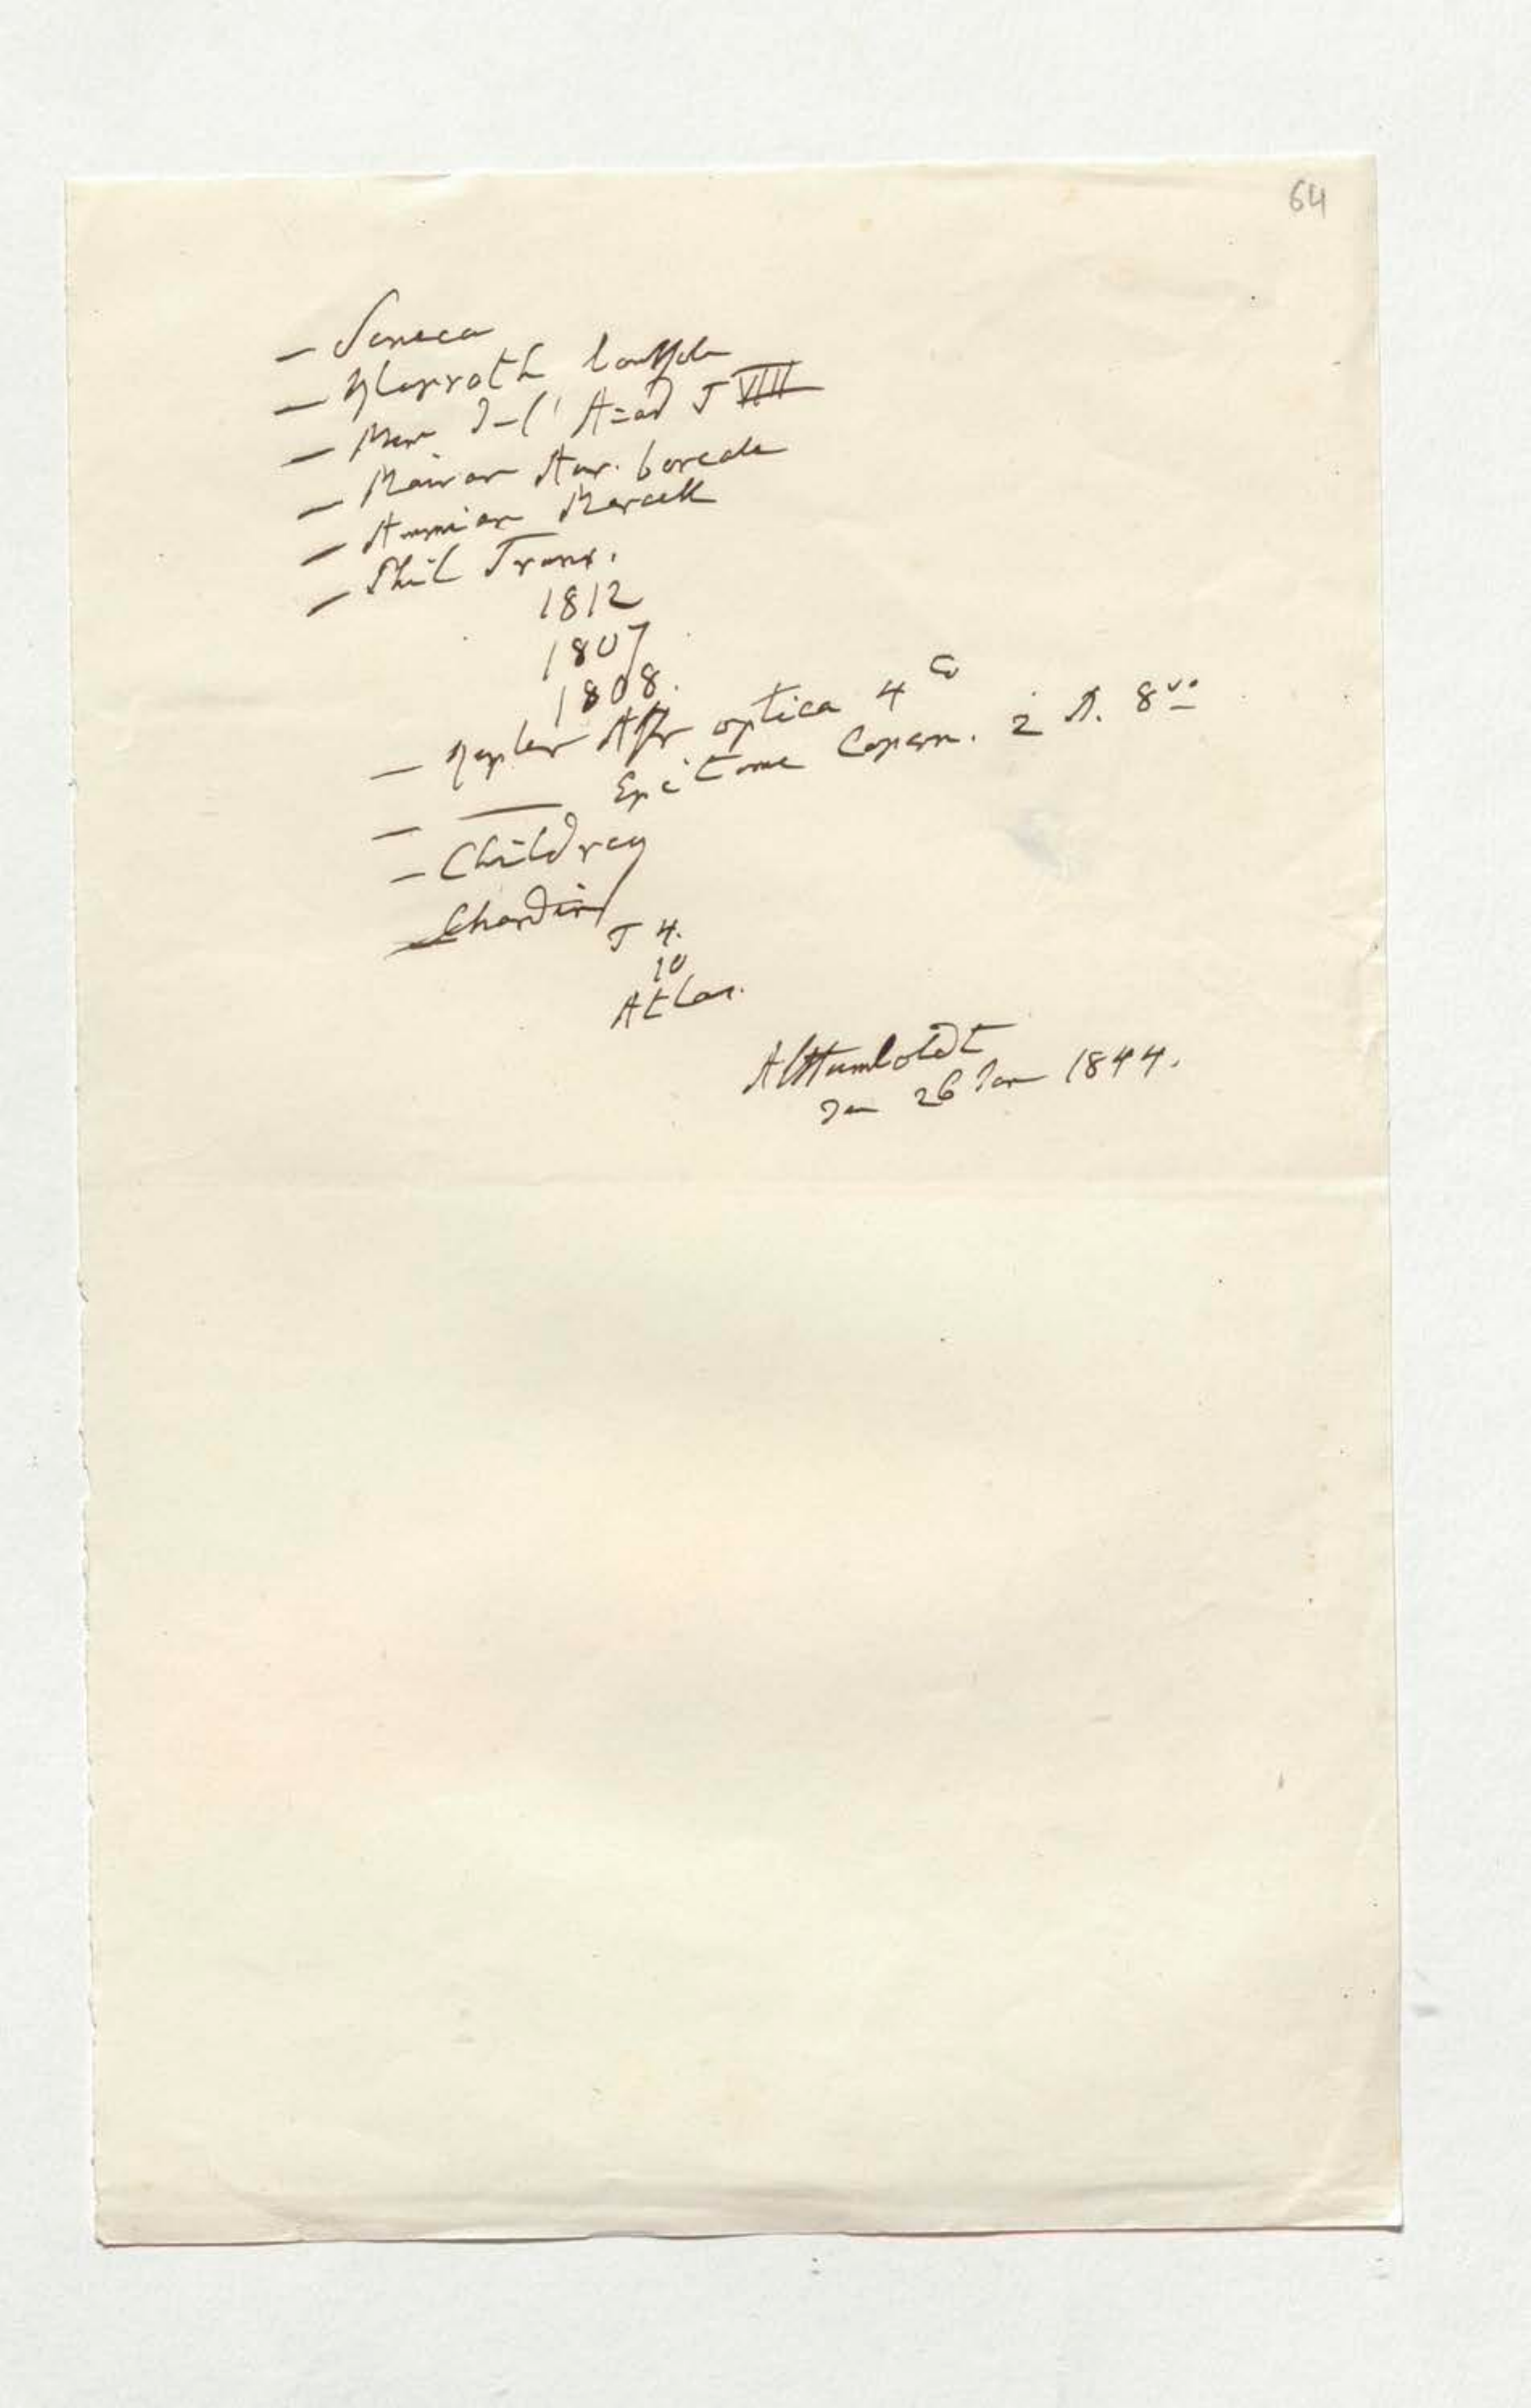 64
— Seneca
— Klaproth boussole
— Mem de l'Acad T VIII
— Mairan Aur. boreale
— Ammian Marcell
— Phil Trans.
1812
1807
1808.
— Kepler Astr optica 4to
— —— Epitome Copern. 2 A. 8vo
— Childrey
— Chardin
T 4.
10
Atlas.
AlHumboldt
den 26 Jan 1844.